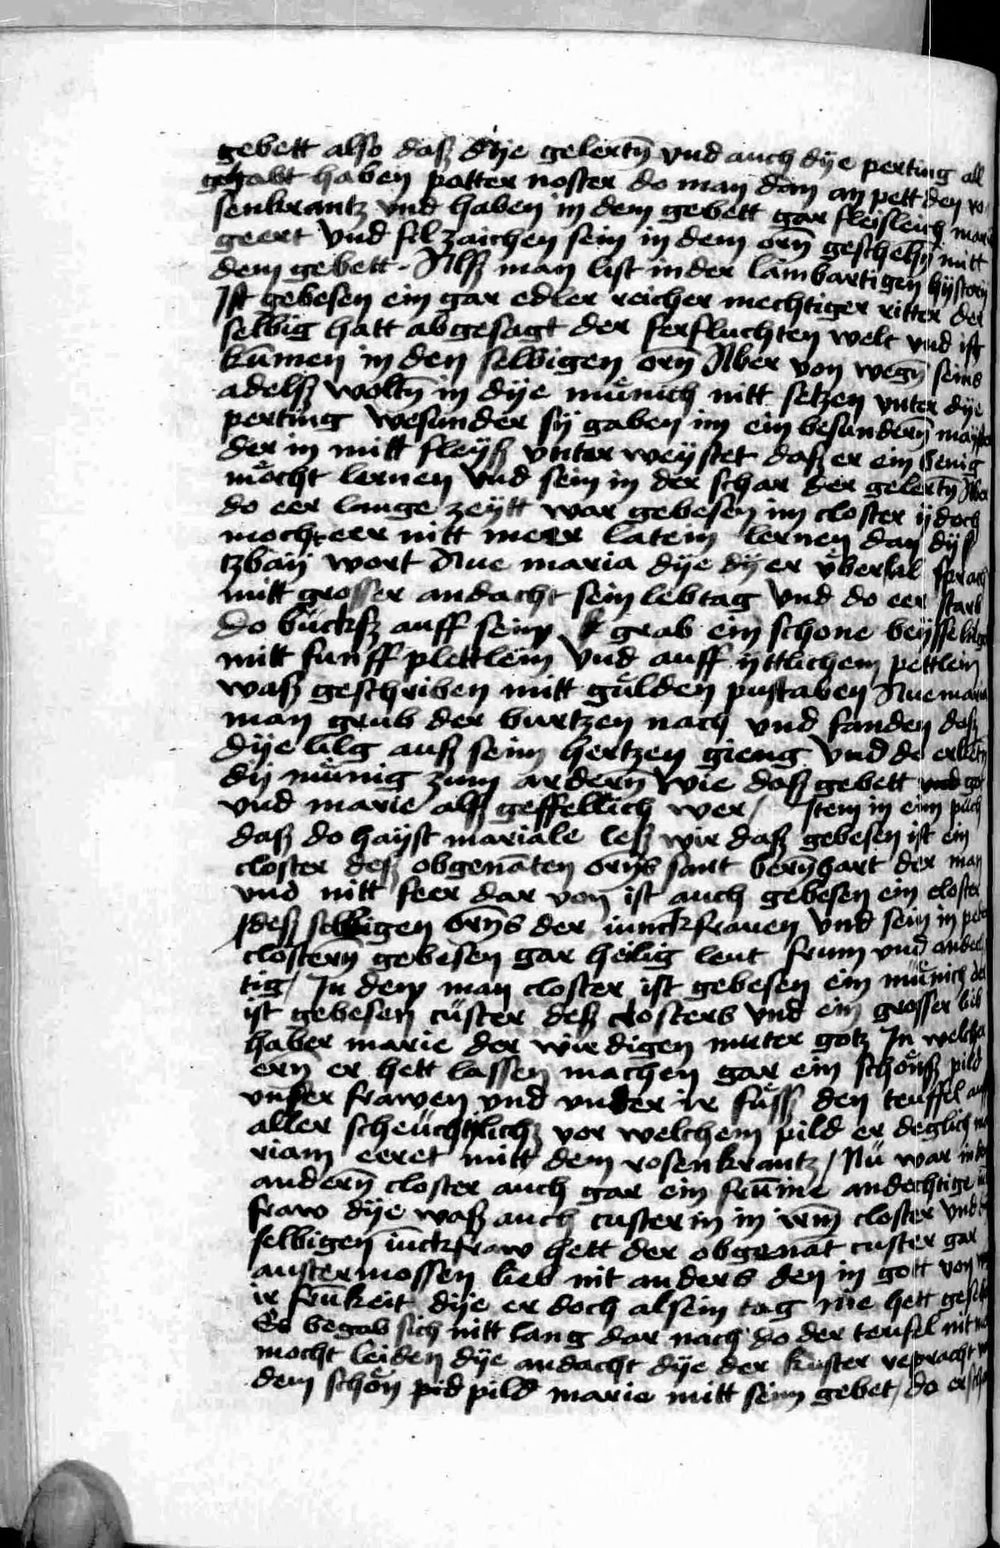 gebett also daß dÿe gelertn̄ vnd auch dÿe perting all
gehabt haben patter noster do man dan an pett den ro
senkrantz vnd haben in dem gebett gar fleisleich mari
geert vnd fil zaichen sein in dem orn̄ geschehn̄ mitt
dem gebett. Alß man list in der lambartigen hÿstorij
Ist gebesen ein gar edler reicher mechtiger ritter der
selbig hatt abgesagt der ferfluchten welt vnd ist
kūmen in den selbigen orn̄ Aber von wegn̄ seins
adelß woltn̄ in dÿe münich nitt setzen vnter dÿe
perting besunder sÿ gaben im ein besundern̄
der in mitt fleÿß vnter weÿstet daß er ein wenig
möcht lernen vnd sein in der schar der gelertn̄ Aber
do eer lange zeÿtt war gebesen im closter ÿdoch
mocht eer nitt meer latein lernen dan dÿß
tzbaÿ wort Aue maria dÿe dÿ er vberal sprach
mitt grosser andacht sein lebtag vnd do eer starb
do bückß auff seim grab ein schone beÿsse lilge
mitt funff plettlein vnd auff ÿttlichem pettlein
waß geschriben mitt gulden pustaben Aue maria
man grub der burtzen nach vnd fanden daß
dÿe lilg auß seim hertzen gieng vnd do
dÿ münig zum andern̄ wie daß gebett vnd got
vnd marie alß geffellich wer / Item in eim puch
daß do haÿst mariale leß wir daß gebesen ist ein
closter deß obgenāten orn̄s sant bern̄hart der man
vnd nitt feer dar von ist auch gebesen ein closter
deß selbigen orn̄s der iunckfrauen vnd sein in
clostern̄ gebesen gar heilig leut frum vnd andech
tig / In dem man closter ist gebesen ein münich der
ist gebesen cüster deß closters vnd ein grosser lieb
haber marie der wirdigen muter gotz In welcher
ern̄ er hett lassen machen gar ein schönß pild
vnser frawen vnd vnder ir füß den teuffel auff
aller scheüchlichß vor welchem pild er deglich ma
riam eeret mitt dem rosenkrantz / Nü war in dem
andern̄ closter auch gar ein frūme andechtige
fraw dÿe waß auch custerin in irm̄ closter vnd
selbigen iūckfraw hett der obgenāt custer gar
aussermossen lieb nit anders den in gott von
ir frūkeit dÿe er doch alsein tag nie hett gesehn
Es begab sich nitt lang dar nach do der teufel nit
mocht leiden dÿe andacht dÿe der kuster vespracht
dem schön pid pild marie mitt seim gebet / do